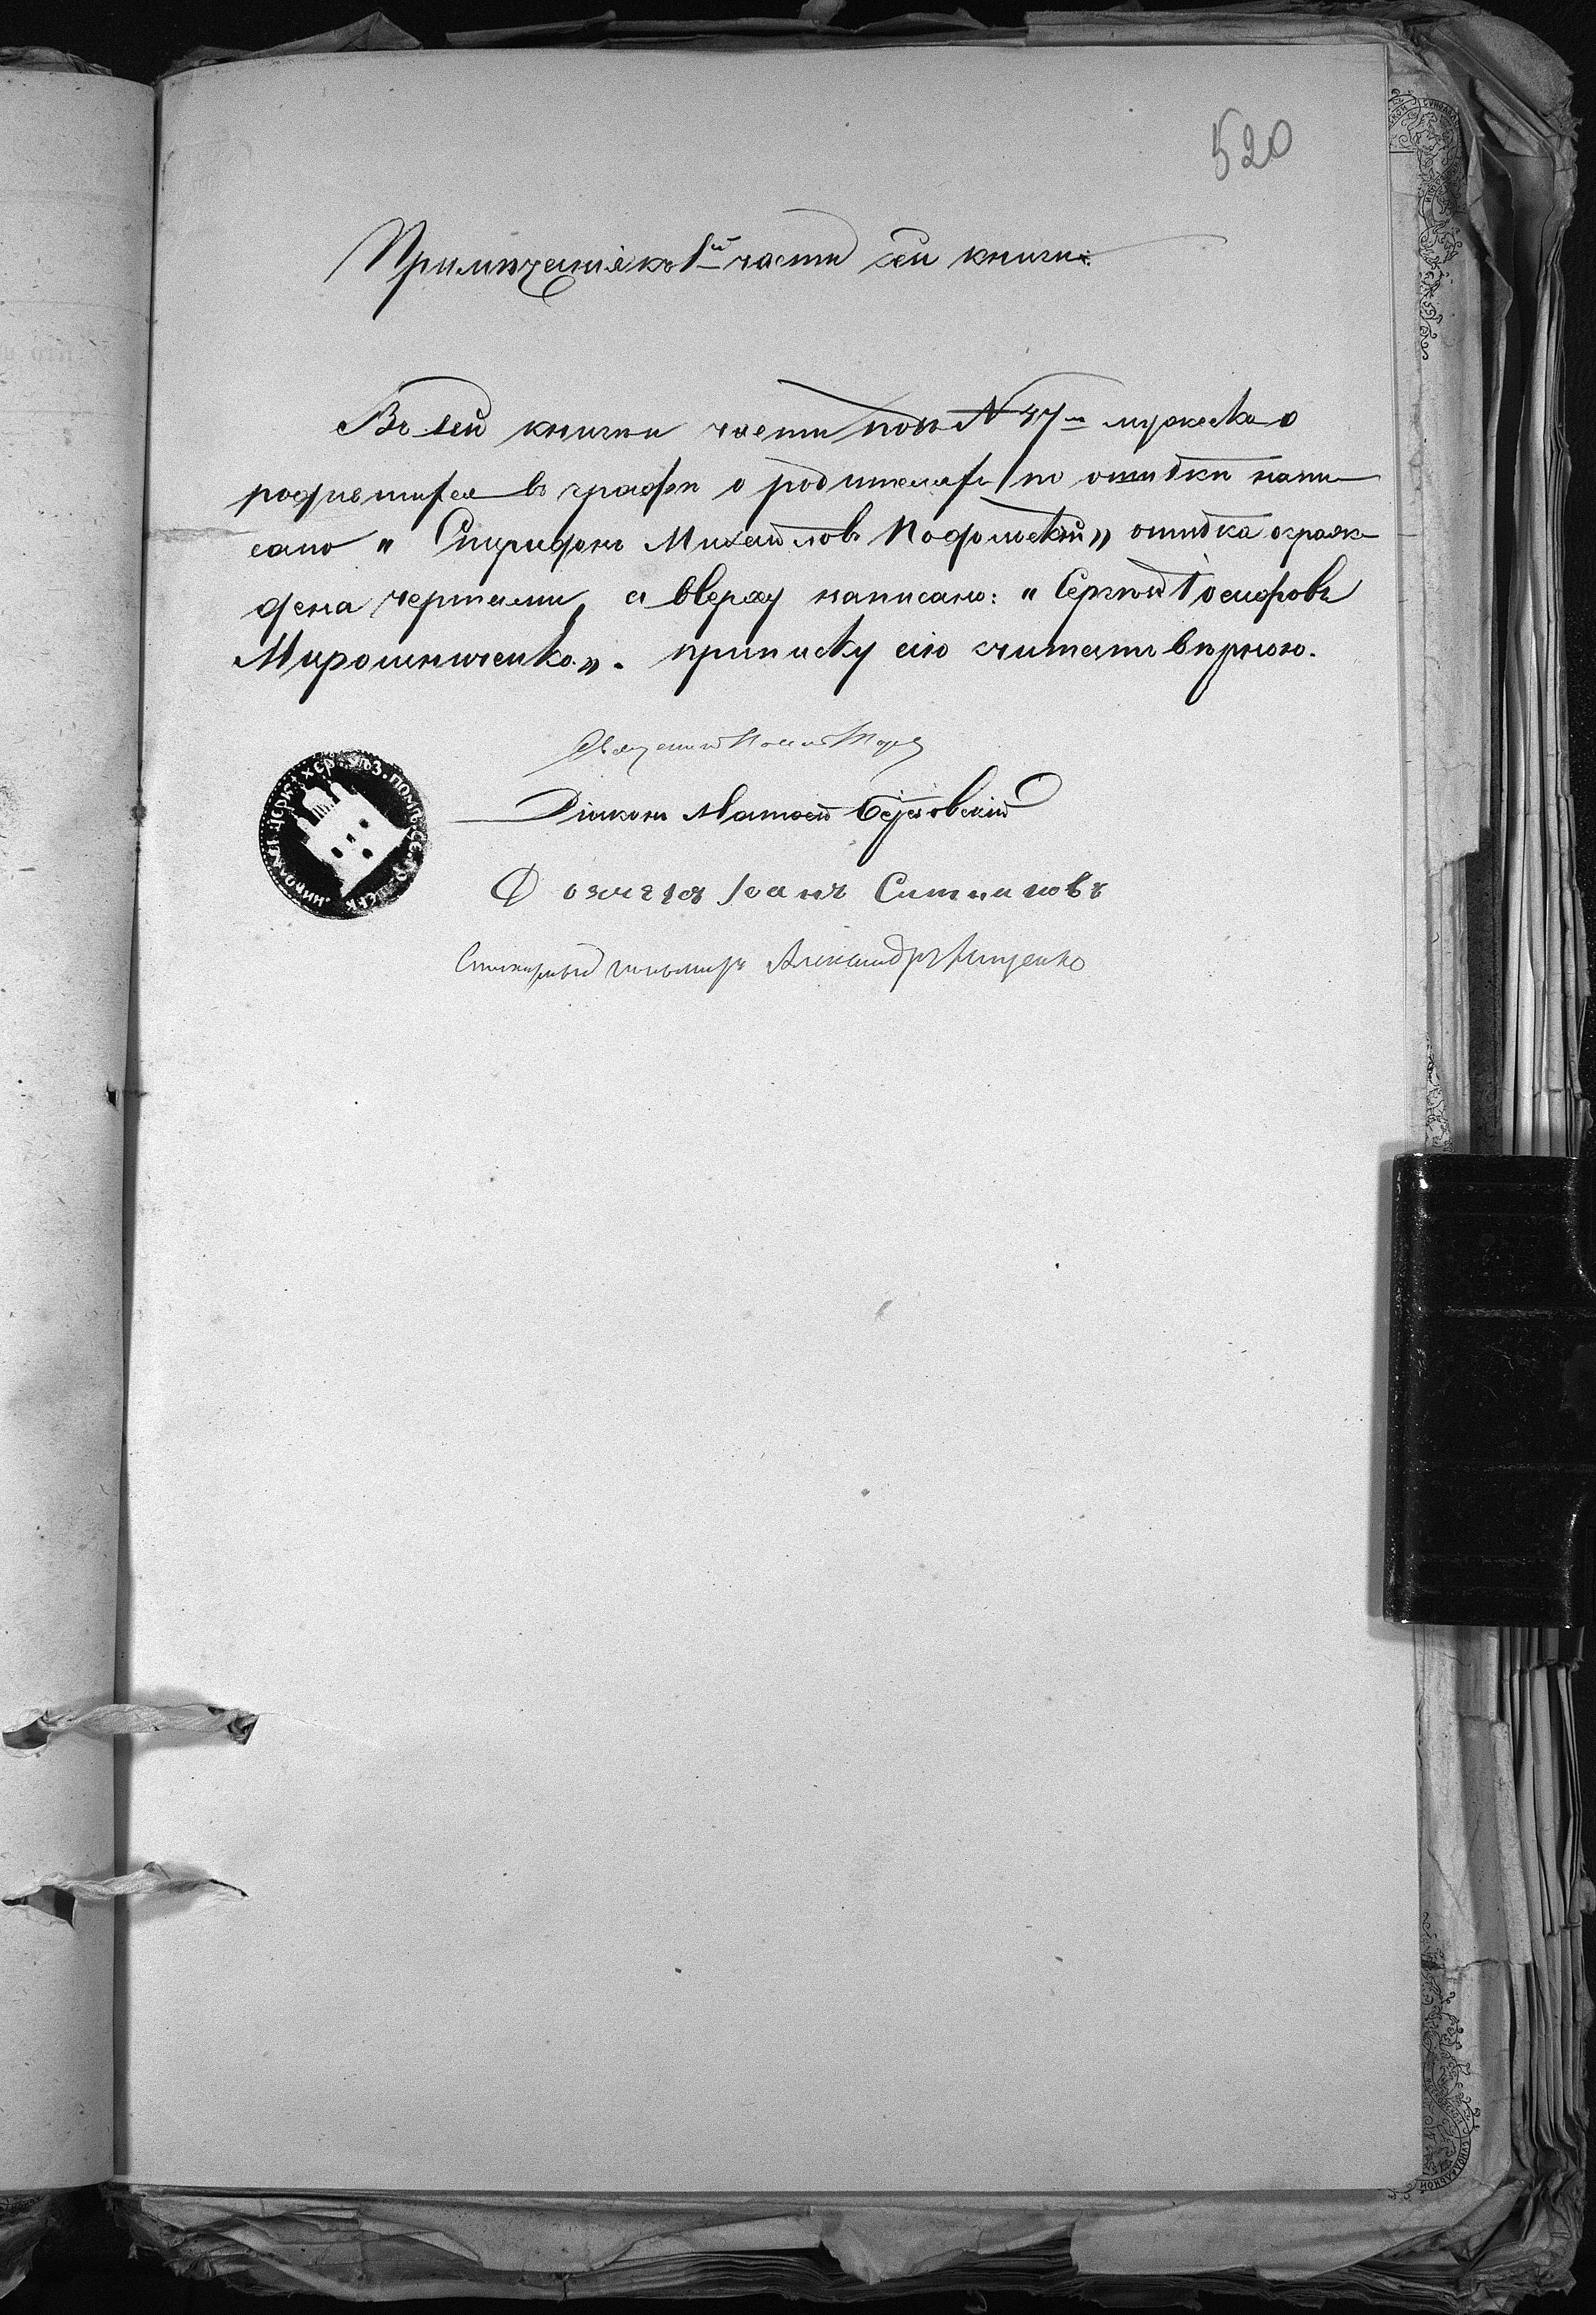 520
Примѣчанія къ 1й части сей книги:
Въ сей книги части подъ № 47м мужеска о
родившихся въ графѣ о родителяхъ по ошибки напи-
сано " Спиридонъ Михайловъ Подольскій" ошибка ограж-
дена чертами, а вверху написано: " Сергѣй Іосифовъ
Мирошниченко". приписку сію считать вѣрною.
Священникъ
Діаконъ Матѳей
Псаломщ Іоанъ Ситниковъ
Александръ